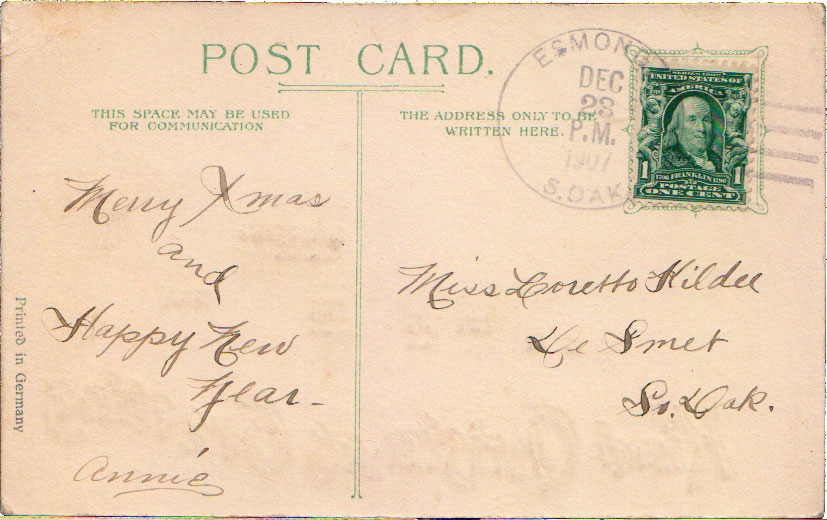 POST CARD.
THIS SPACE MAY BE USED
FOR COMMUNICATION
THE ADDRESS ONLY TO BE
WRITTEN HERE.
ESMOND
DEC
23
P.M.
1907
S.DAK
SERIES 1902
UNITED STATES OF
AMERICA
1 1
1706 FRANKLIN 1790
POSTAGE
ONE CENT
Merry Xmas
and
Happy New
Year -
Annie
Miss Loretto Kildee
De Smet
So. Dak.
Printed in Germany